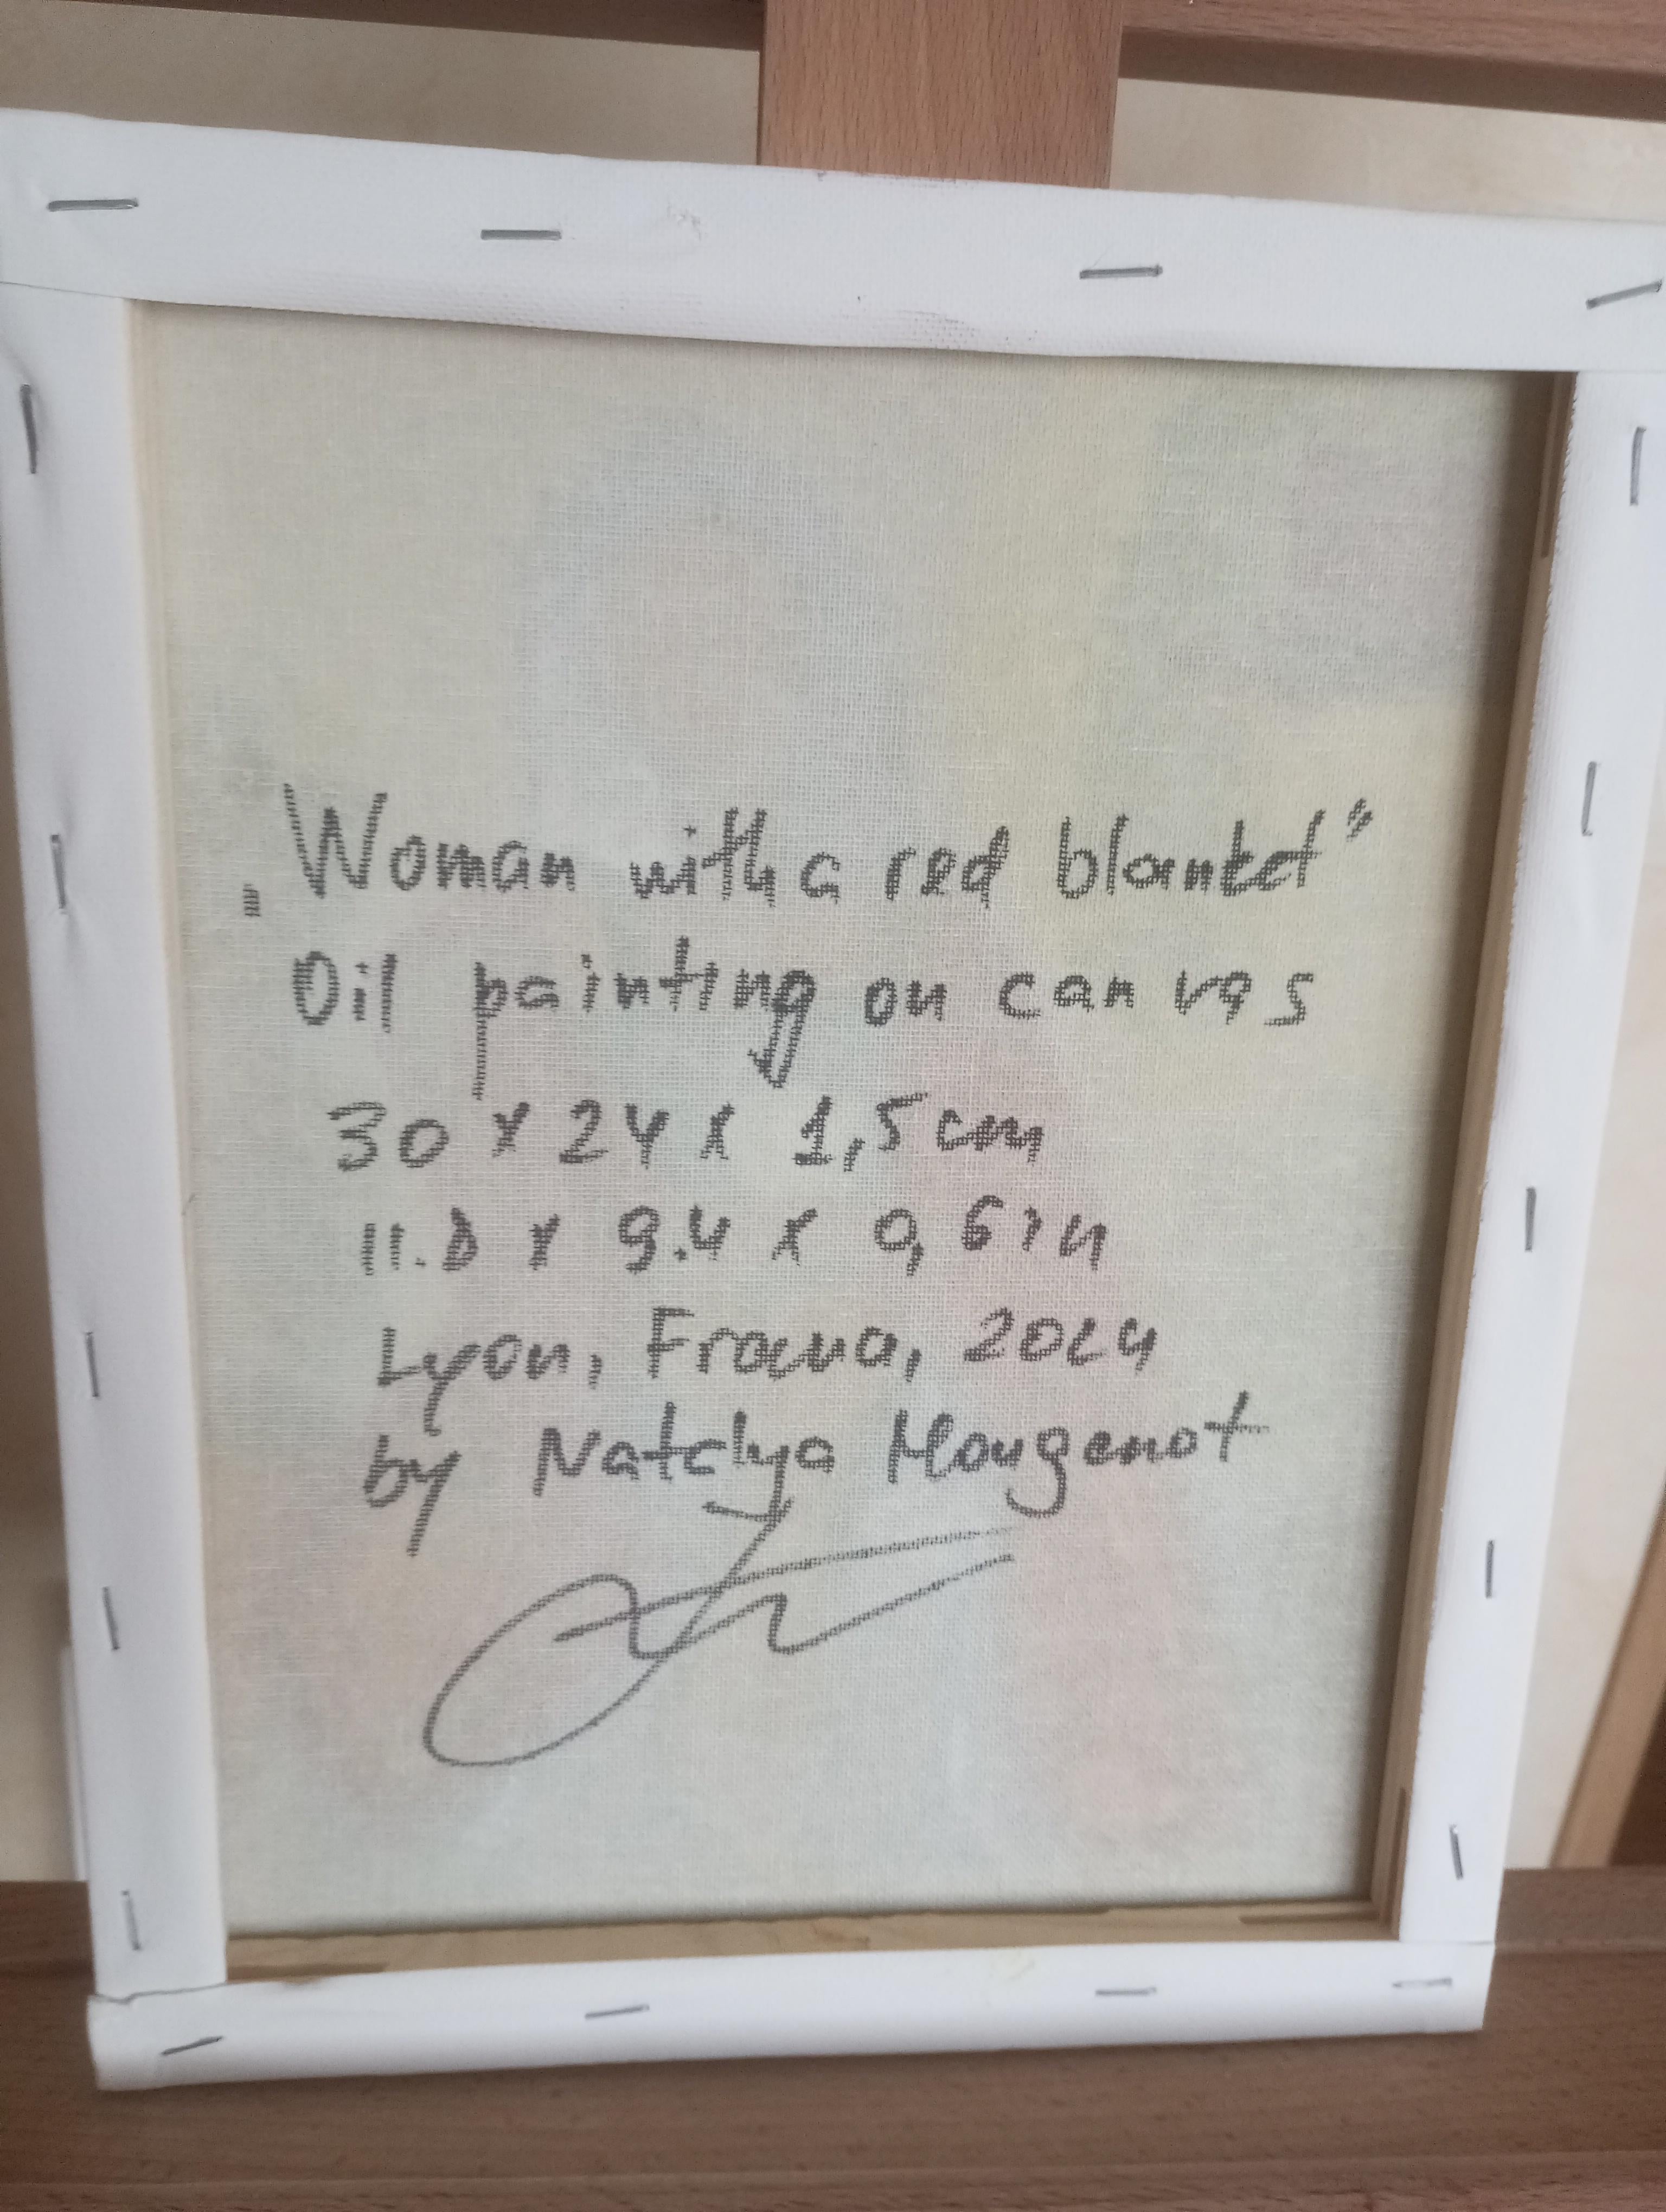 „Woman with a red blanket”
Oil painting on canvas
30 x 24 x 1,5 cm
11.8 x 9.4 x 0,6 in
Lyon, France, 2024
by Natalya Mougenot